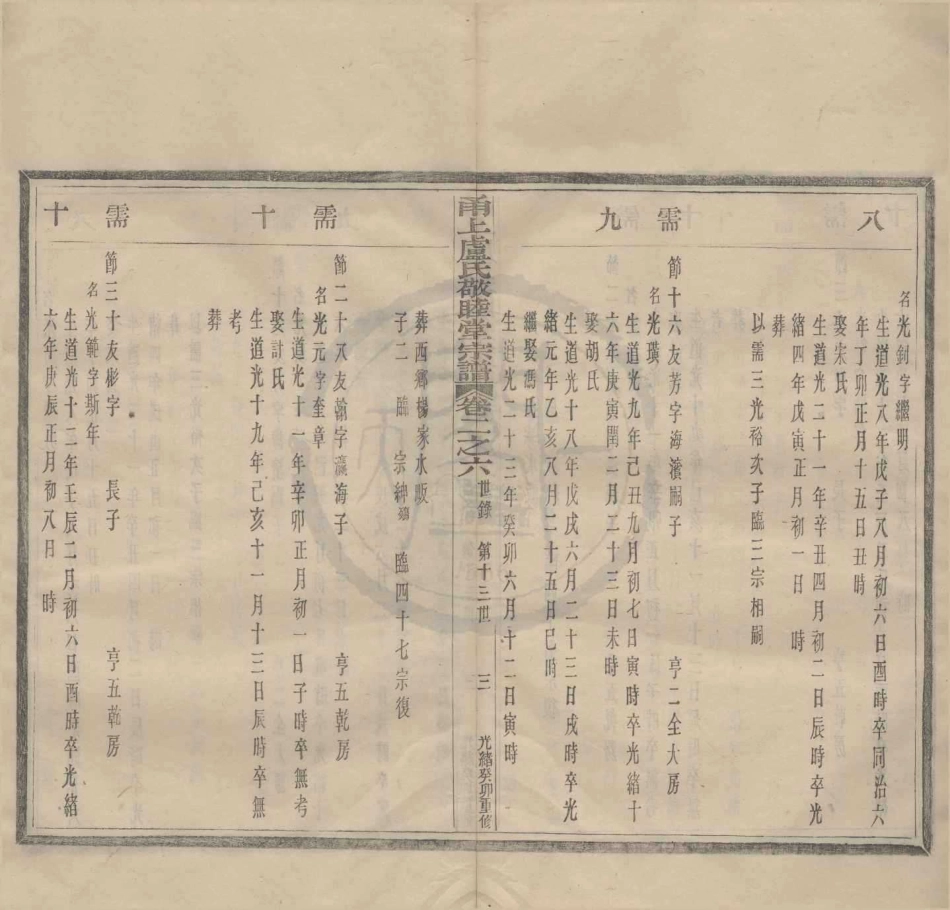 八
名光釗字繼明
生道光八年戊子八月初六日酉時卒同治六
年丁卯正月十五日丑時
娶宋氏
生道光二十一年辛丑四月初二日辰時卒光
緒四年戊寅正月初一日 時
葬
以需三光裕次子臨三宗相嗣
需九
節十六友芳字海濱嗣子 亨二全大房
名光璜
生道光九年己丑九月初七日寅時卒光緒十
六年庚寅閏二月二十三日未時
娶胡氏
生道光十八年戊戌六月二十三日戌時卒光
緒元年乙亥八月二十五日巳時
繼娶馮氏
生道光二十三年癸卯六月十二日寅時
甬上盧氏敬睦堂宗譜 卷二之六 世錄 第十三世 三 光緒癸卯重修
葬西鄉楊家水畈
子二 臨 宗紳殤 臨四十七宗復
需十
節二十八友翰字瀛海子 亨五乾房
名光元字奎章
生道光十一年辛卯正月初一日子時卒無考
娶計氏
生道光十九年己亥十一月十三日辰時卒無
考
葬
需十
節三十友彬字 長子 亨五乾房
名光範字斯年
生道光十二年壬辰二月初六日酉時卒光緒
六年庚辰正月初八日 時